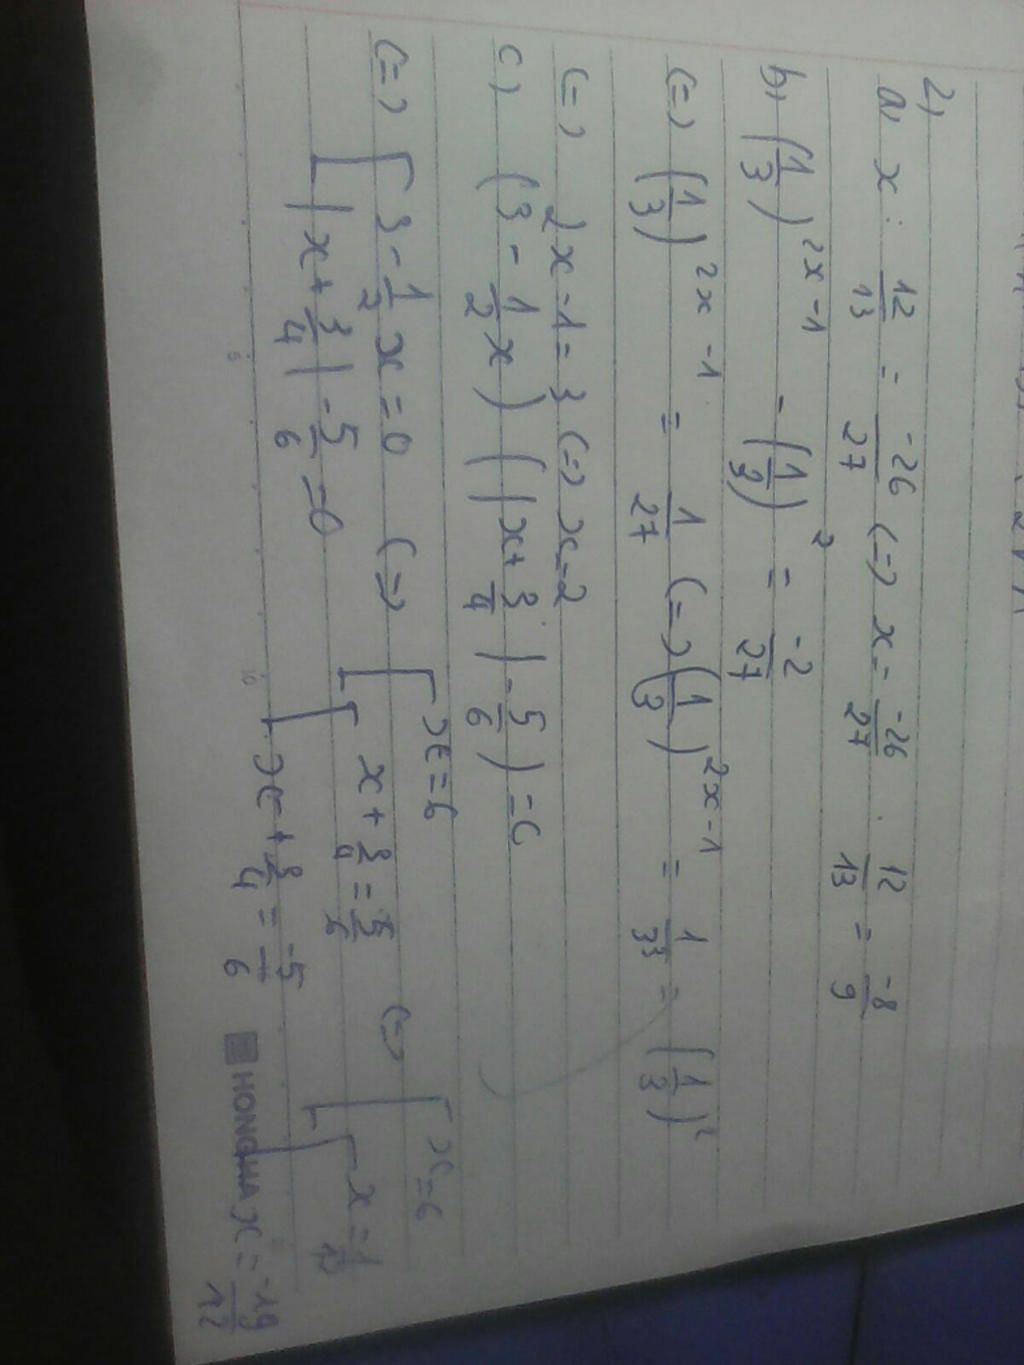 2)
a) x : 12/13 = -26/27 (=) x = -26/27 . 12/13 = -8/9
b) (1/3)^2x-1 - (1/9)^2 = -2/27
(=) (1/3)^2x-1 = 1/27 (=) (1/3)^2x-1 = 1/3^3 = (1/3)^2
(=) 2x-1=3 (=) x=2
c) (3 - 1/2 x) (|x+3/4| - 5/6) =0
(=) [3 - 1/2 x =0 (=) [x=6 (=) [x=6
|x+3/4| - 5/6 =0 [x+3/4 = 5/6 [x=1/12
x+3/4 = -5/6 x = -19/12
5
10
HONG HA